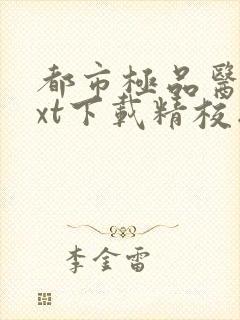 都市極品醫
xt下載精校
李金雷